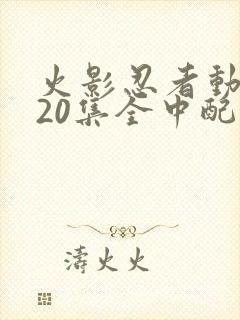 火影忍者動
20集全中配
濤火火